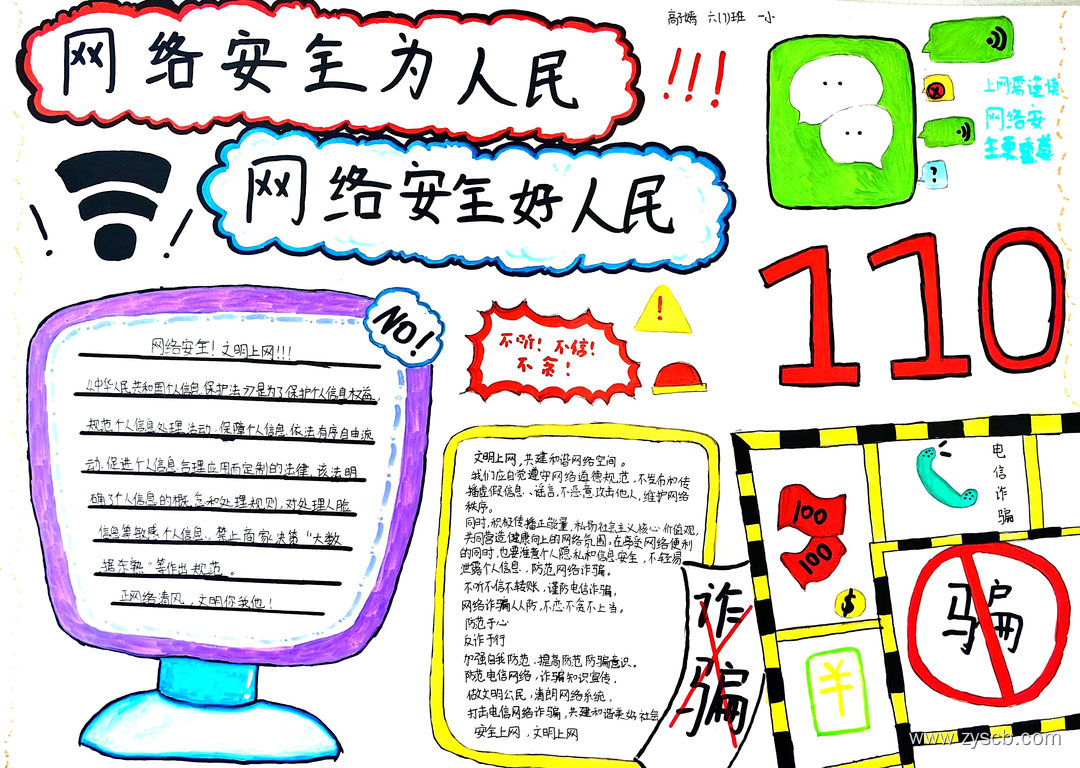 六(1)班 一小
网络安全为人民
!!!
网络安全好人民
上网需谨慎
网络安
全更重要
?
110
NO!
网络安全!文明上网!!!
《中华人民共和国个人信息保护法》是为了保护个人信息权益,
规范个人信息处理活动,保障个人信息依法有序自由流
动,促进个人信息合理应用而定制的法律。该法明
确了个人信息的概念和处理规则,对处理人脸
信息等敏感个人信息、禁止商家决策“大数
据杀熟”等作出规范。
正网络清风,文明你我他!
不听!不信!
不贪!
!
文明上网,共建和谐网络空间。
我们应自觉遵守网络道德规范,不发布和传
播虚假信息、谣言,不恶意攻击他人,维护网络
秩序。
同时,积极传播正能量,弘扬社会主义核心价值观,
共同营造健康向上的网络氛围,在享受网络便利
的同时,也要注意个人隐私和信息安全,不轻易
泄露个人信息,防范网络诈骗。
不听不信不转账,谨防电信诈骗。
网络诈骗人人防,不恋不贪不上当。
防范于心
反诈于行
加强自我防范,提高防范防骗意识。
防范电信网络,诈骗知识宣传。
做文明公民,清朗网络系统。
打击电信网络诈骗,共建和谐美好社会
安全上网,文明上网
诈骗
100
100
$
¥
电信诈骗
骗
www.zyscb.com